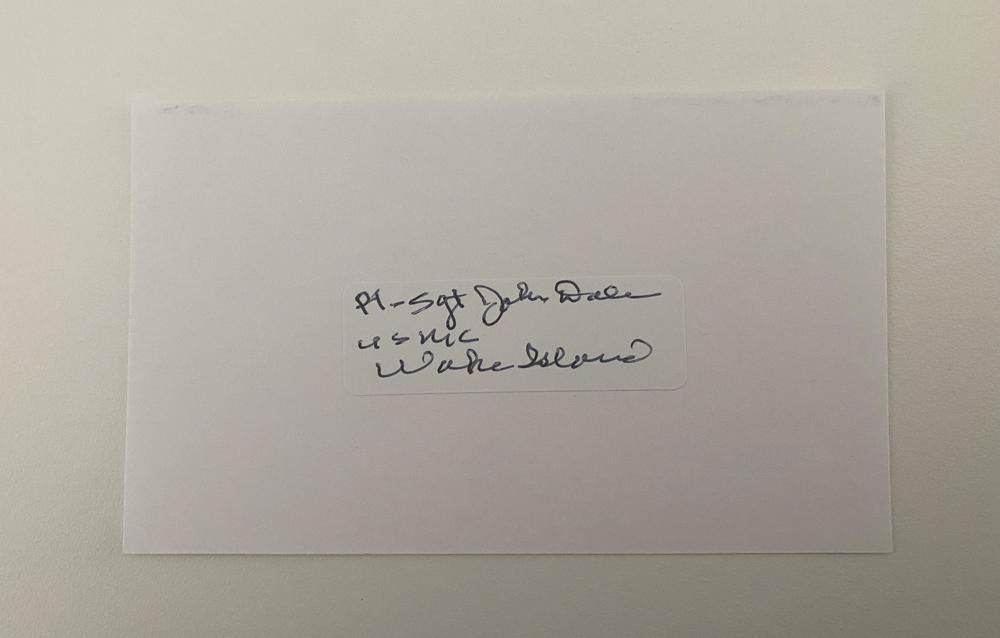 Pl-Sgt John Dale
USMC
Wake Island